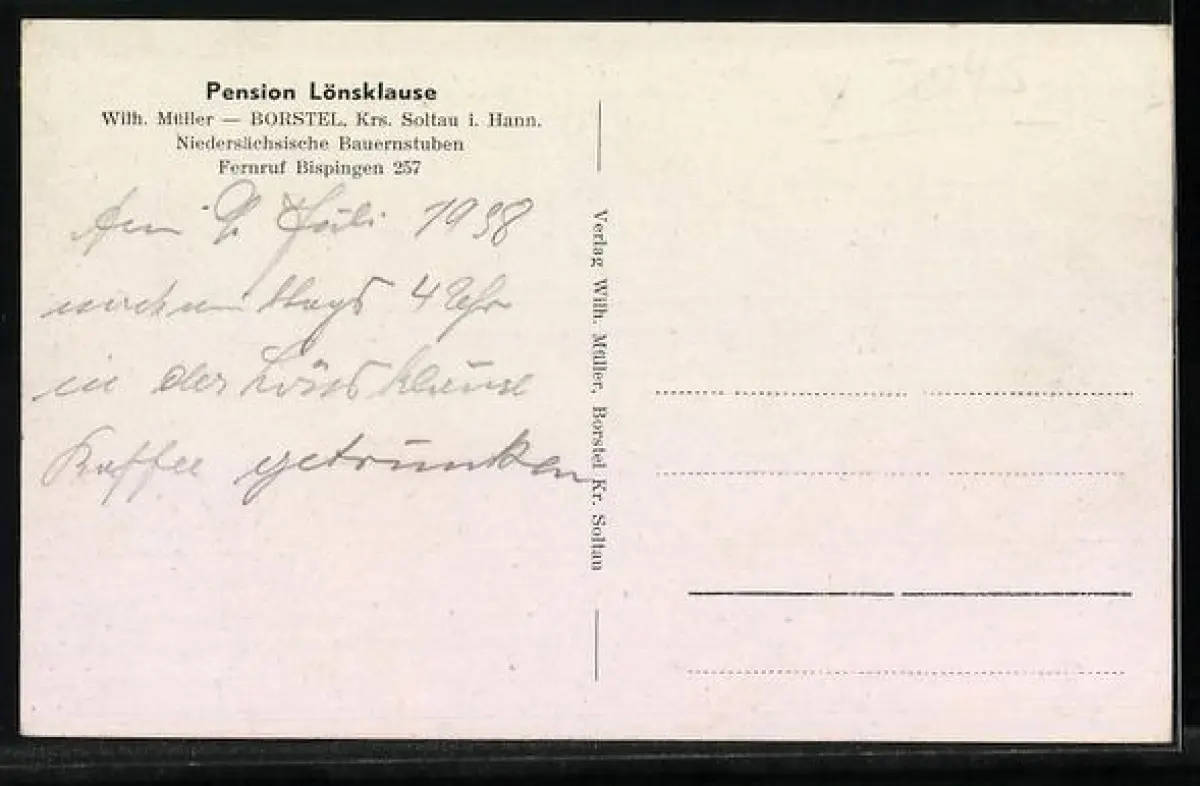 Pension Lönsklause
Wilh. Müller — BORSTEL, Krs. Soltau i. Hann.
Niedersächsische Bauernstuben
Fernruf Bispingen 257
den 9. Juli 1938
nachmittags 4 Uhr
in der Lönsklause
Kaffee getrunken
Verlag Wilh. Müller, Borstel Kr. Soltau